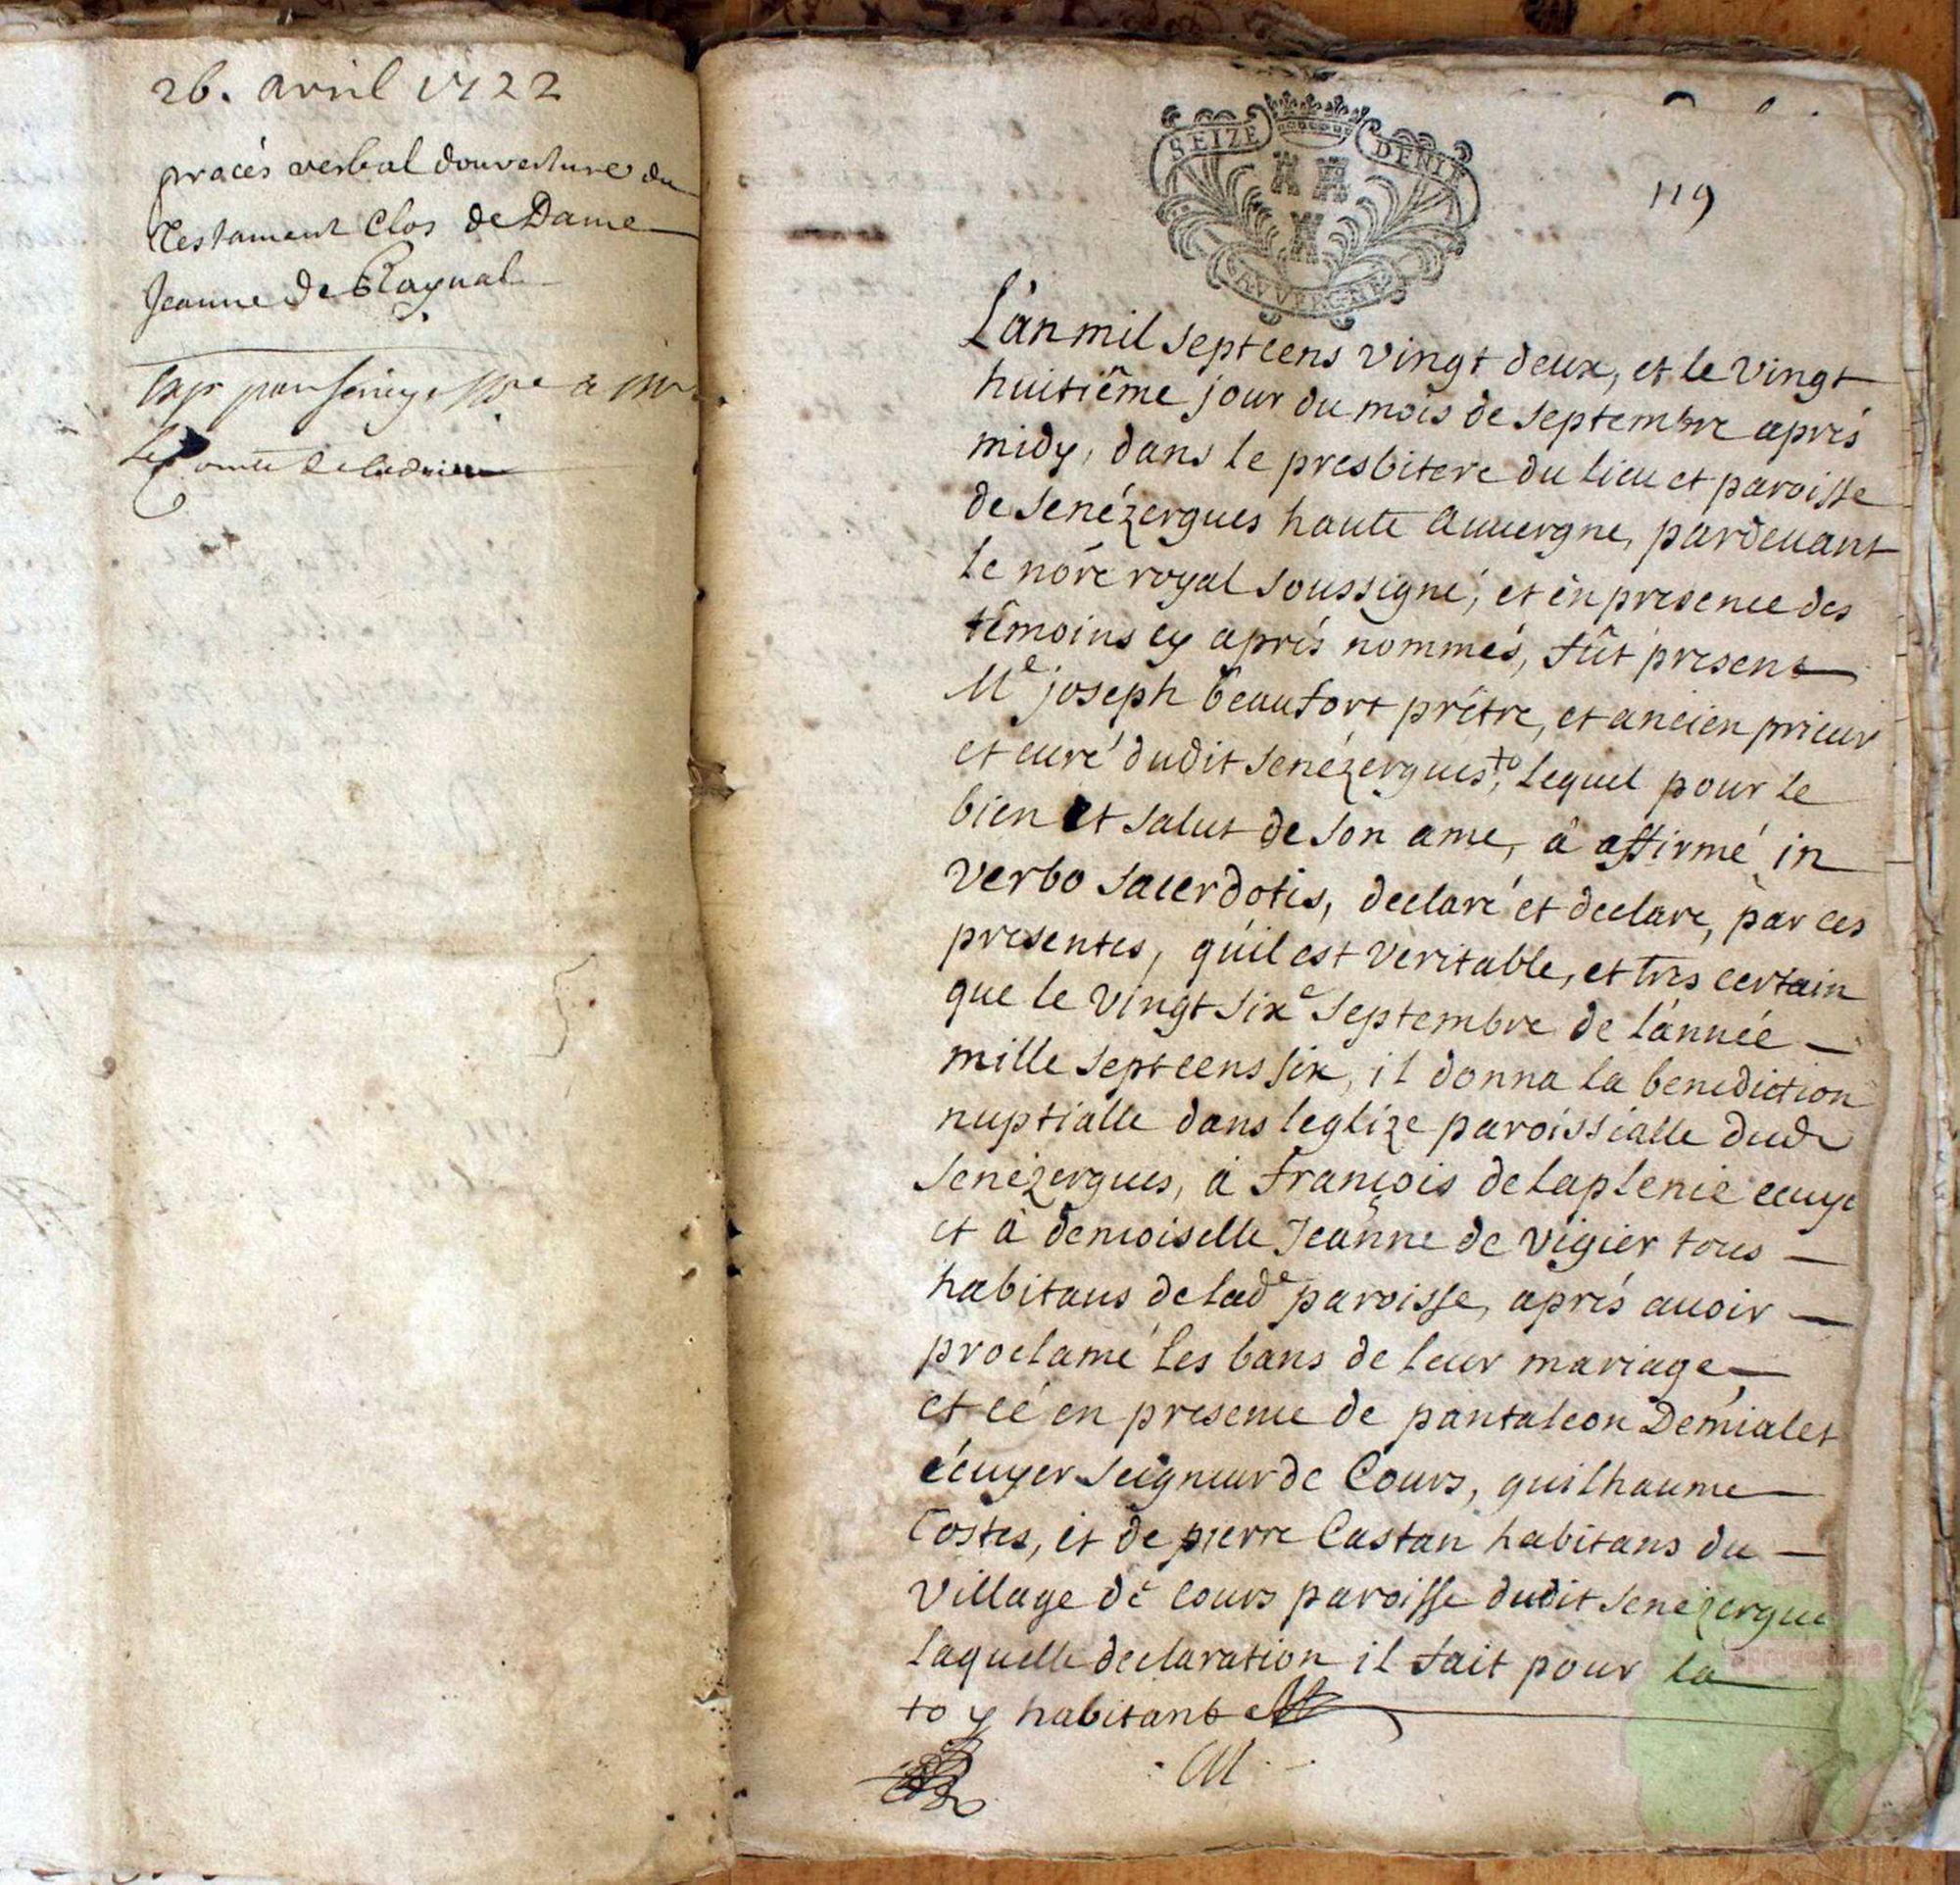 26. avril 1722
procés verbal douverture du
testament Clos de Dame
Jeanne de Raynal
SEIZE DENIE
AVVERGNE
119
L'an mil sept cens vingt deux, et le vingt
huitiême jour du mois de septembre aprés
midy, dans le presbitere du lieu et paroisse
de senézergues haute auuergne, pardeuant
le nore royal soussigné, et en presence des
têmoins cy aprés nommés, fût present
Me joseph beaufort prêtre, et ancien prieur
et curé dudit senézergues, to lequel pour le
bien et salut de son ame, à affirmé in
verbo sacerdotis, declaré et declare, par ces
presentes, qu'il est veritable, et tres certain
que le vingt sixe septembre de l'année
mille sept cens six, il donna la benediction
nuptialle dans leglize paroissialle dud
senézergues, à françois de laplenie ecuye
et à demoiselle Jeanne de vigier tous
habitans de lade paroisse, aprés auoir
proclamé les bans de leur mariage,
et ce en presence de pantaleon Demialet
écuyer seigneur de Cours, guilhaume
Costes, et de pierre Castan habitans du
village de cours paroisse dudit senezergue
laquelle declaration il fait pour la
to y habitant